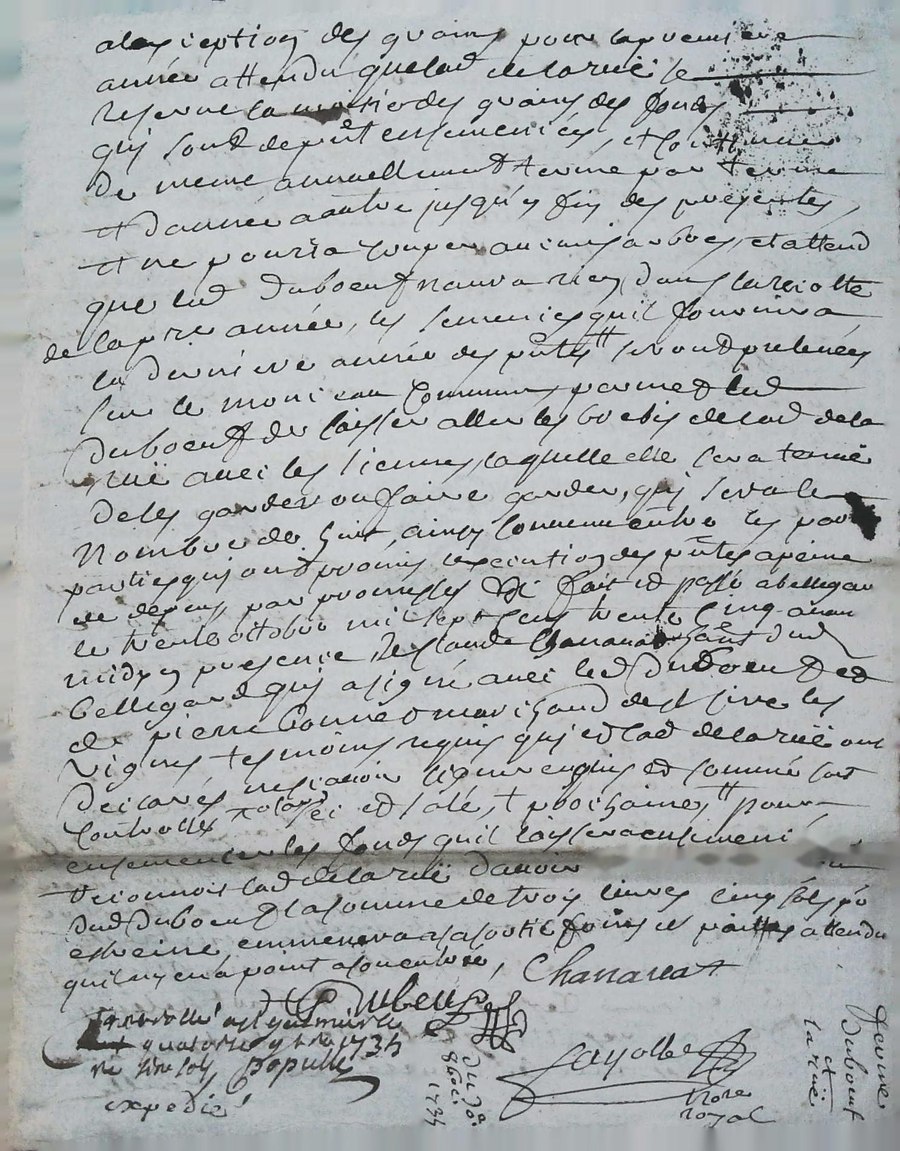 alexception des grains pour la premiere
année attendu que lad delaruë se
reserve la moitié des grains des fonds
qui sont depnt ensemencés, et continuer
de meme annuellement terme par terme
et d'année a autre jusqu'a fin des presentes,
et ne pourra couper aucuns arbres, et attend
que led Duboeuf n'aura rien dans la recolte
de la pre année, les semences quil fournira
la derniere année des pntes seront prelevées
sur le monceau commun, permet led
Duboeuf de laisser aller les brebis de lad dela
ruë avec les siennes, laquelle elle sera tenuë
de les garder ou faire garder, qui sera le
nombre de huit, ainsy convenu entre les
parties qui ont promis lexecution des pntes apeine
de depens, par promesses &c fait et passé a bellegarde
le trente octobre mil sept cent trente cinq avant
midy en presence de Claude Chananat dud
bellegarde qui a signé avec led duboeuf et
de pierre bonnet marchand de st sire les
vignes tesmoins requis qui et lad delaruë ont
declarés ne scavoir signer enquis et sommé soit
controllé et scellé, prochaines pour
ensemencer les fonds quil laissera ensemencé
reconnois lad delaruë davoir
dud Duboeuf la somme de trois livres cinq sols pr
estreine, emmenera a sa sortie foins et pailles attendu
quil ny en a point a son entrée, Chananat
Dubeuf
controllé a st galmier le
quatorze 9bre 1735
re six sols Populle
expedié
du 30
8bre
1735
Fayolle
nore
royal
ferme
Duboeuf
et
laruë